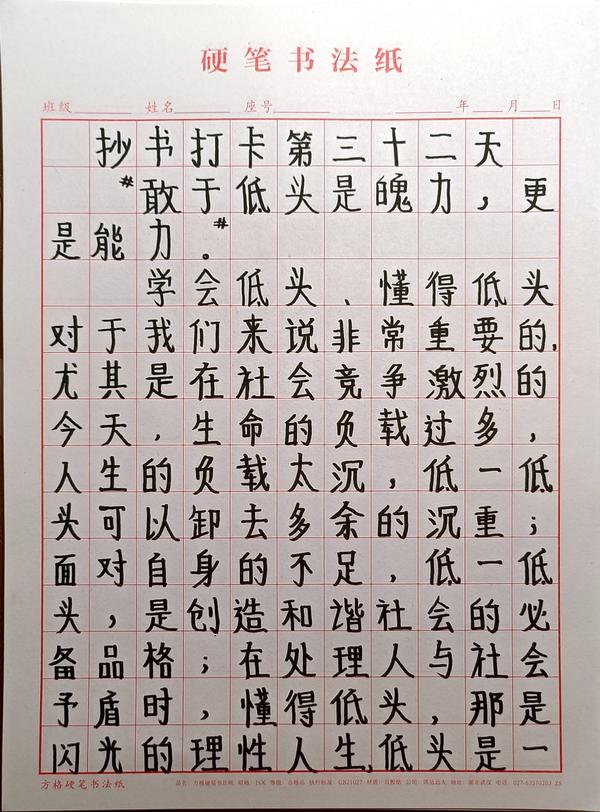 硬笔书法纸
班级 姓名 座号 年 月 日
抄书打卡第三十二天
"敢于低头是魄力，更
是能力。"
学会低头、懂得低头
对于我们来说非常重要的,
尤其是在社会竞争激烈的
今天，生命的负载过多，
人生的负载太沉，低一低
头可以卸去多余的沉重；
面对自身的不足，低一低
头，是创造和谐社会的必
备品格；在处理人与社会
予盾时，懂得低头，那是
闪光的理性人生,低头是一
方格硬笔书法纸